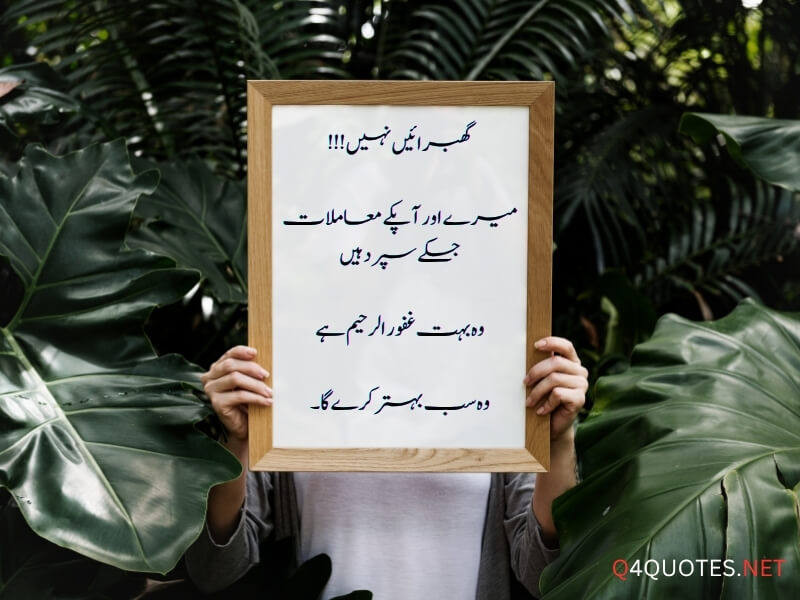 گھبرائیں نہیں!!!
میرے اور آپکے معاملات
جسکے سپرد ہیں
وہ بہت غفور الرحیم ہے
وہ سب بہتر کرے گا۔
Q4QUOTES.NET